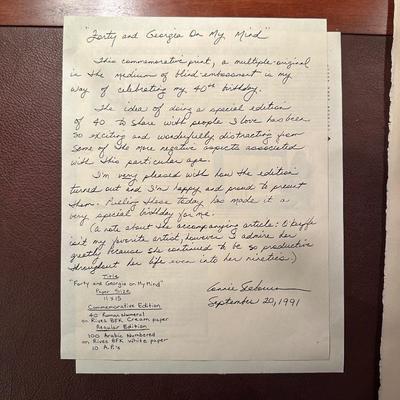 "Forty and Georgia On My Mind"
This commemorative print, a multiple-original
in the medium of blind-embossment is my
way of celebrating my 40th birthday.
The idea of doing a special edition
of 40 to share with people I love has been
so exciting and wonderfully distracting from
some of the more negative aspects associated
with this particular age.
I'm very pleased with how the edition
turned out and I'm happy and proud to present
them. Pulling these today has made it a
very special birthday for me.
(a note about the accompanying article: O'Keeffe
isn't my favorite artist, however I adore her
greatly because she continued to be so productive
throughout her life even into her nineties.)
Title
"Forty and Georgia on My Mind"
Paper Size
11 x 15
Commemorative Edition
40 Roman Numeral
on Rives BFK Cream paper
Regular Edition
100 Arabic Numbered
on Rives BFK White paper
10 A.P.'s
September 20, 1991